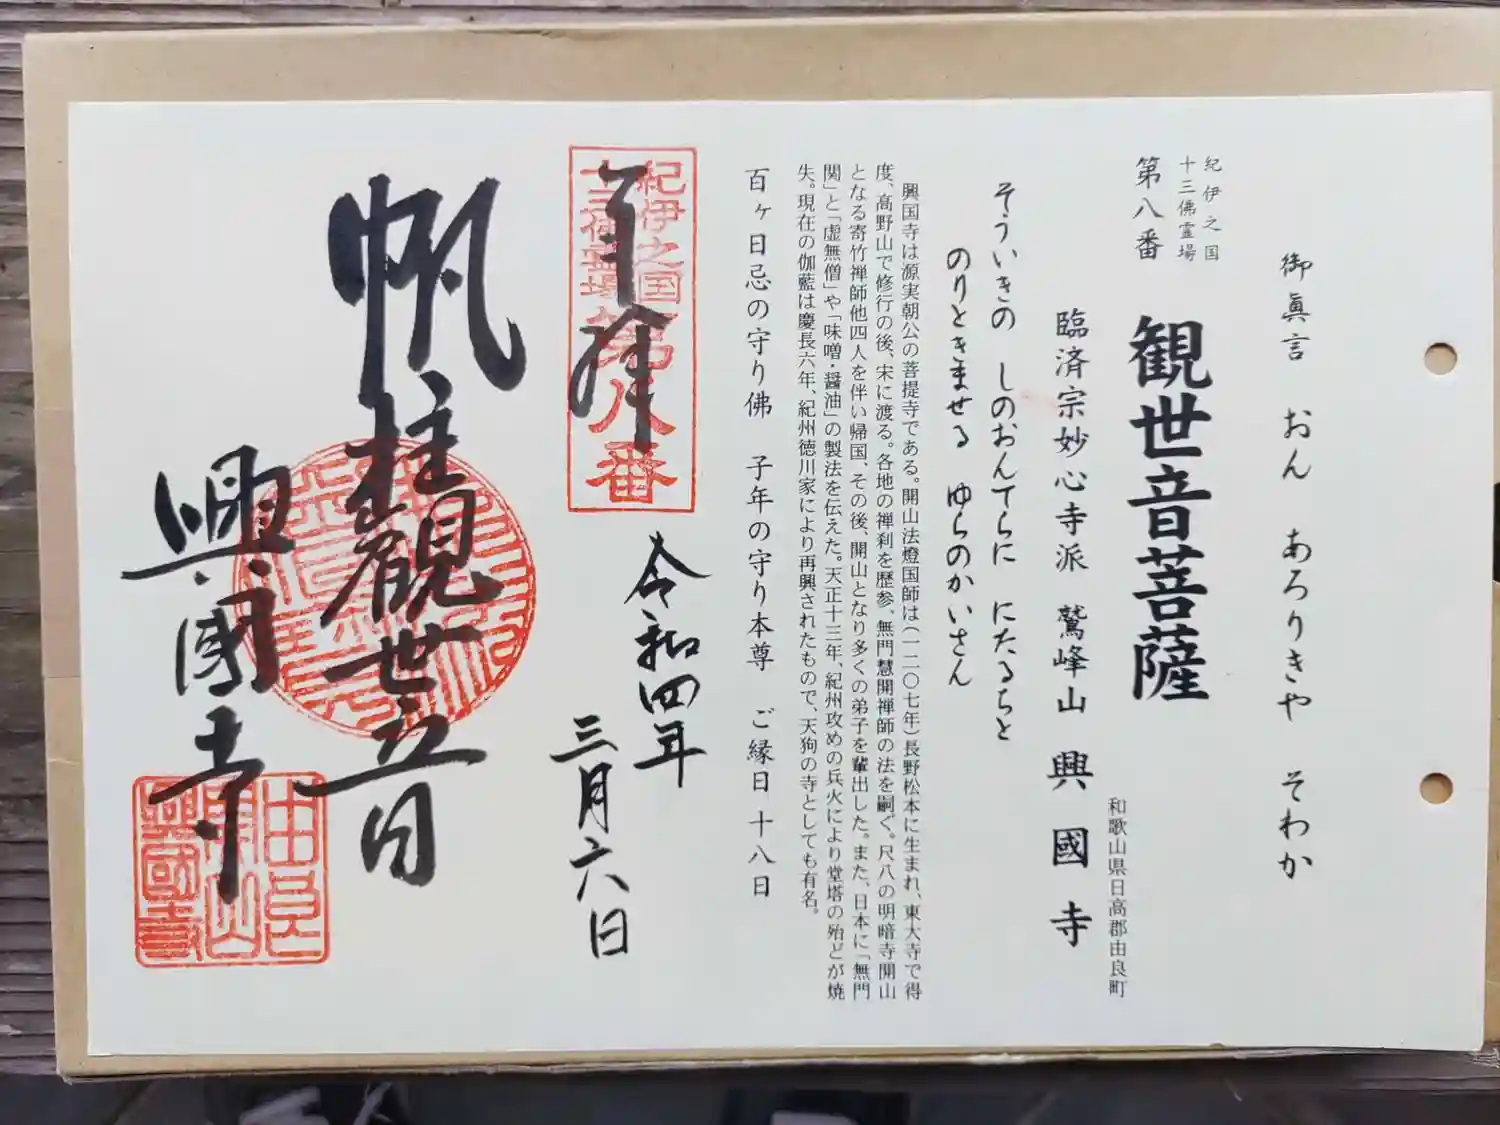 御眞言　おん　あろりきや　そわか
紀伊之国
十三佛霊場
第八番　観世音菩薩
和歌山県日高郡由良町
臨済宗妙心寺派　鷲峰山　興國寺
そういきの　しのおんてらに　にたるらと
のりときませる　ゆらのかいさん
興国寺は源実朝公の菩提寺である。開山法燈国師は(一二〇七年)長野松本に生まれ、東大寺で得
度、高野山で修行の後、宋に渡る。各地の禅刹を歴参、無門慧開禅師の法を嗣ぐ。尺八の明暗寺開山
となる寄竹禅師他四人を伴い帰国、その後、開山となり多くの弟子を輩出した。また、日本に「無門
関」と「虚無僧」や「味噌・醤油」の製法を伝えた。天正十三年、紀州攻めの兵火により堂塔の殆どが焼
失。現在の伽藍は慶長六年、紀州徳川家により再興されたもので、天狗の寺としても有名。
百ヶ日忌の守り佛　子年の守り本尊　ご縁日十八日
紀伊之国
十三佛霊場
第八番
奉拝
令和四年
三月六日
帆柱観世音
興國寺
由良
興國寺